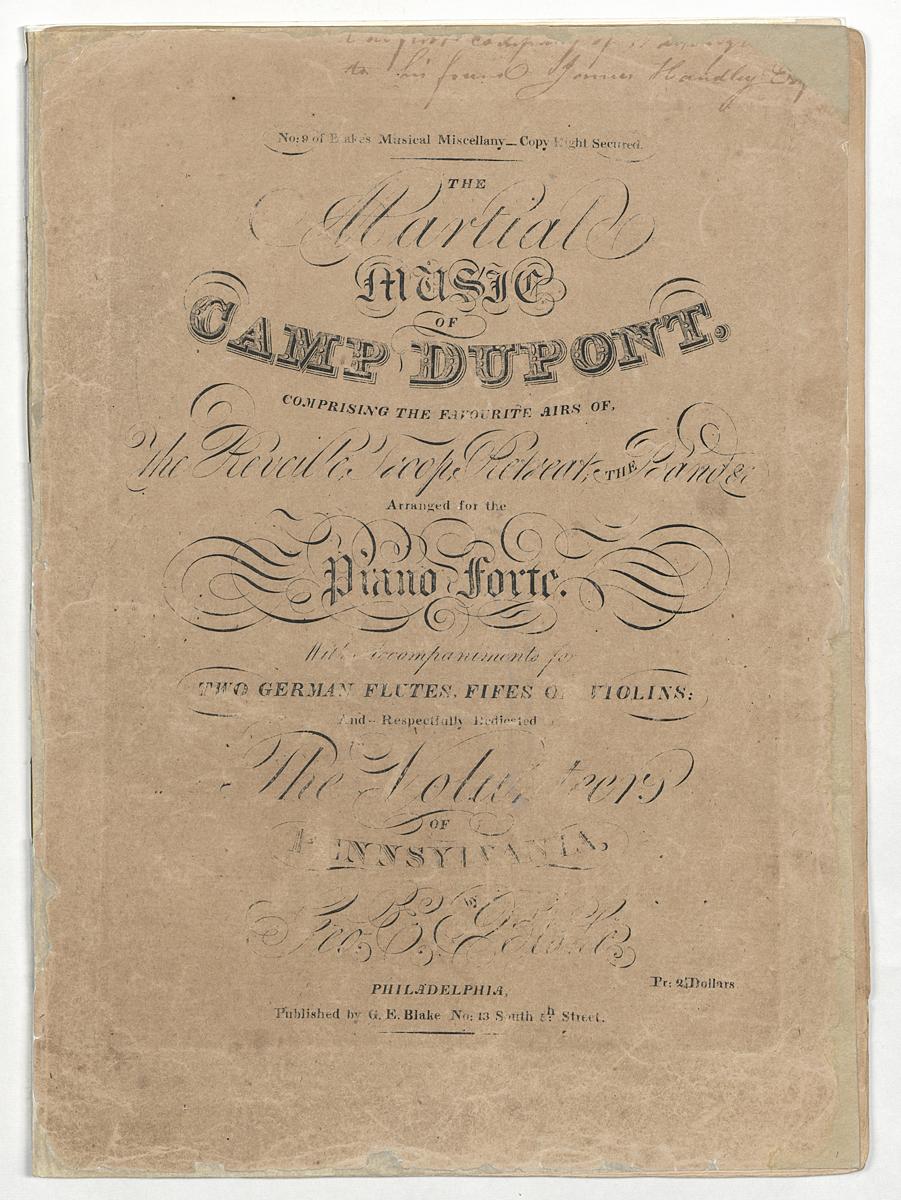 to his friend James Handley Esq
No: 9 of Blake's Musical Miscellany — Copy Right Secured.
THE
Martial
MUSIC
OF
CAMP DUPONT,
COMPRISING THE FAVOURITE AIRS OF,
The Reveille, Troop, Retreat, THE Rand &c
Arranged for the
Piano Forte.
With Accompaniments for
TWO GERMAN FLUTES, FIFES OR VIOLINS:
And -- Respectfully Dedicated
The Volunteers
OF
PENNSYLVANIA,
BY
Geo. E. Blake
PHILADELPHIA,
Pr: 2 Dollars
Published by G. E. Blake No: 13 South 5th Street.